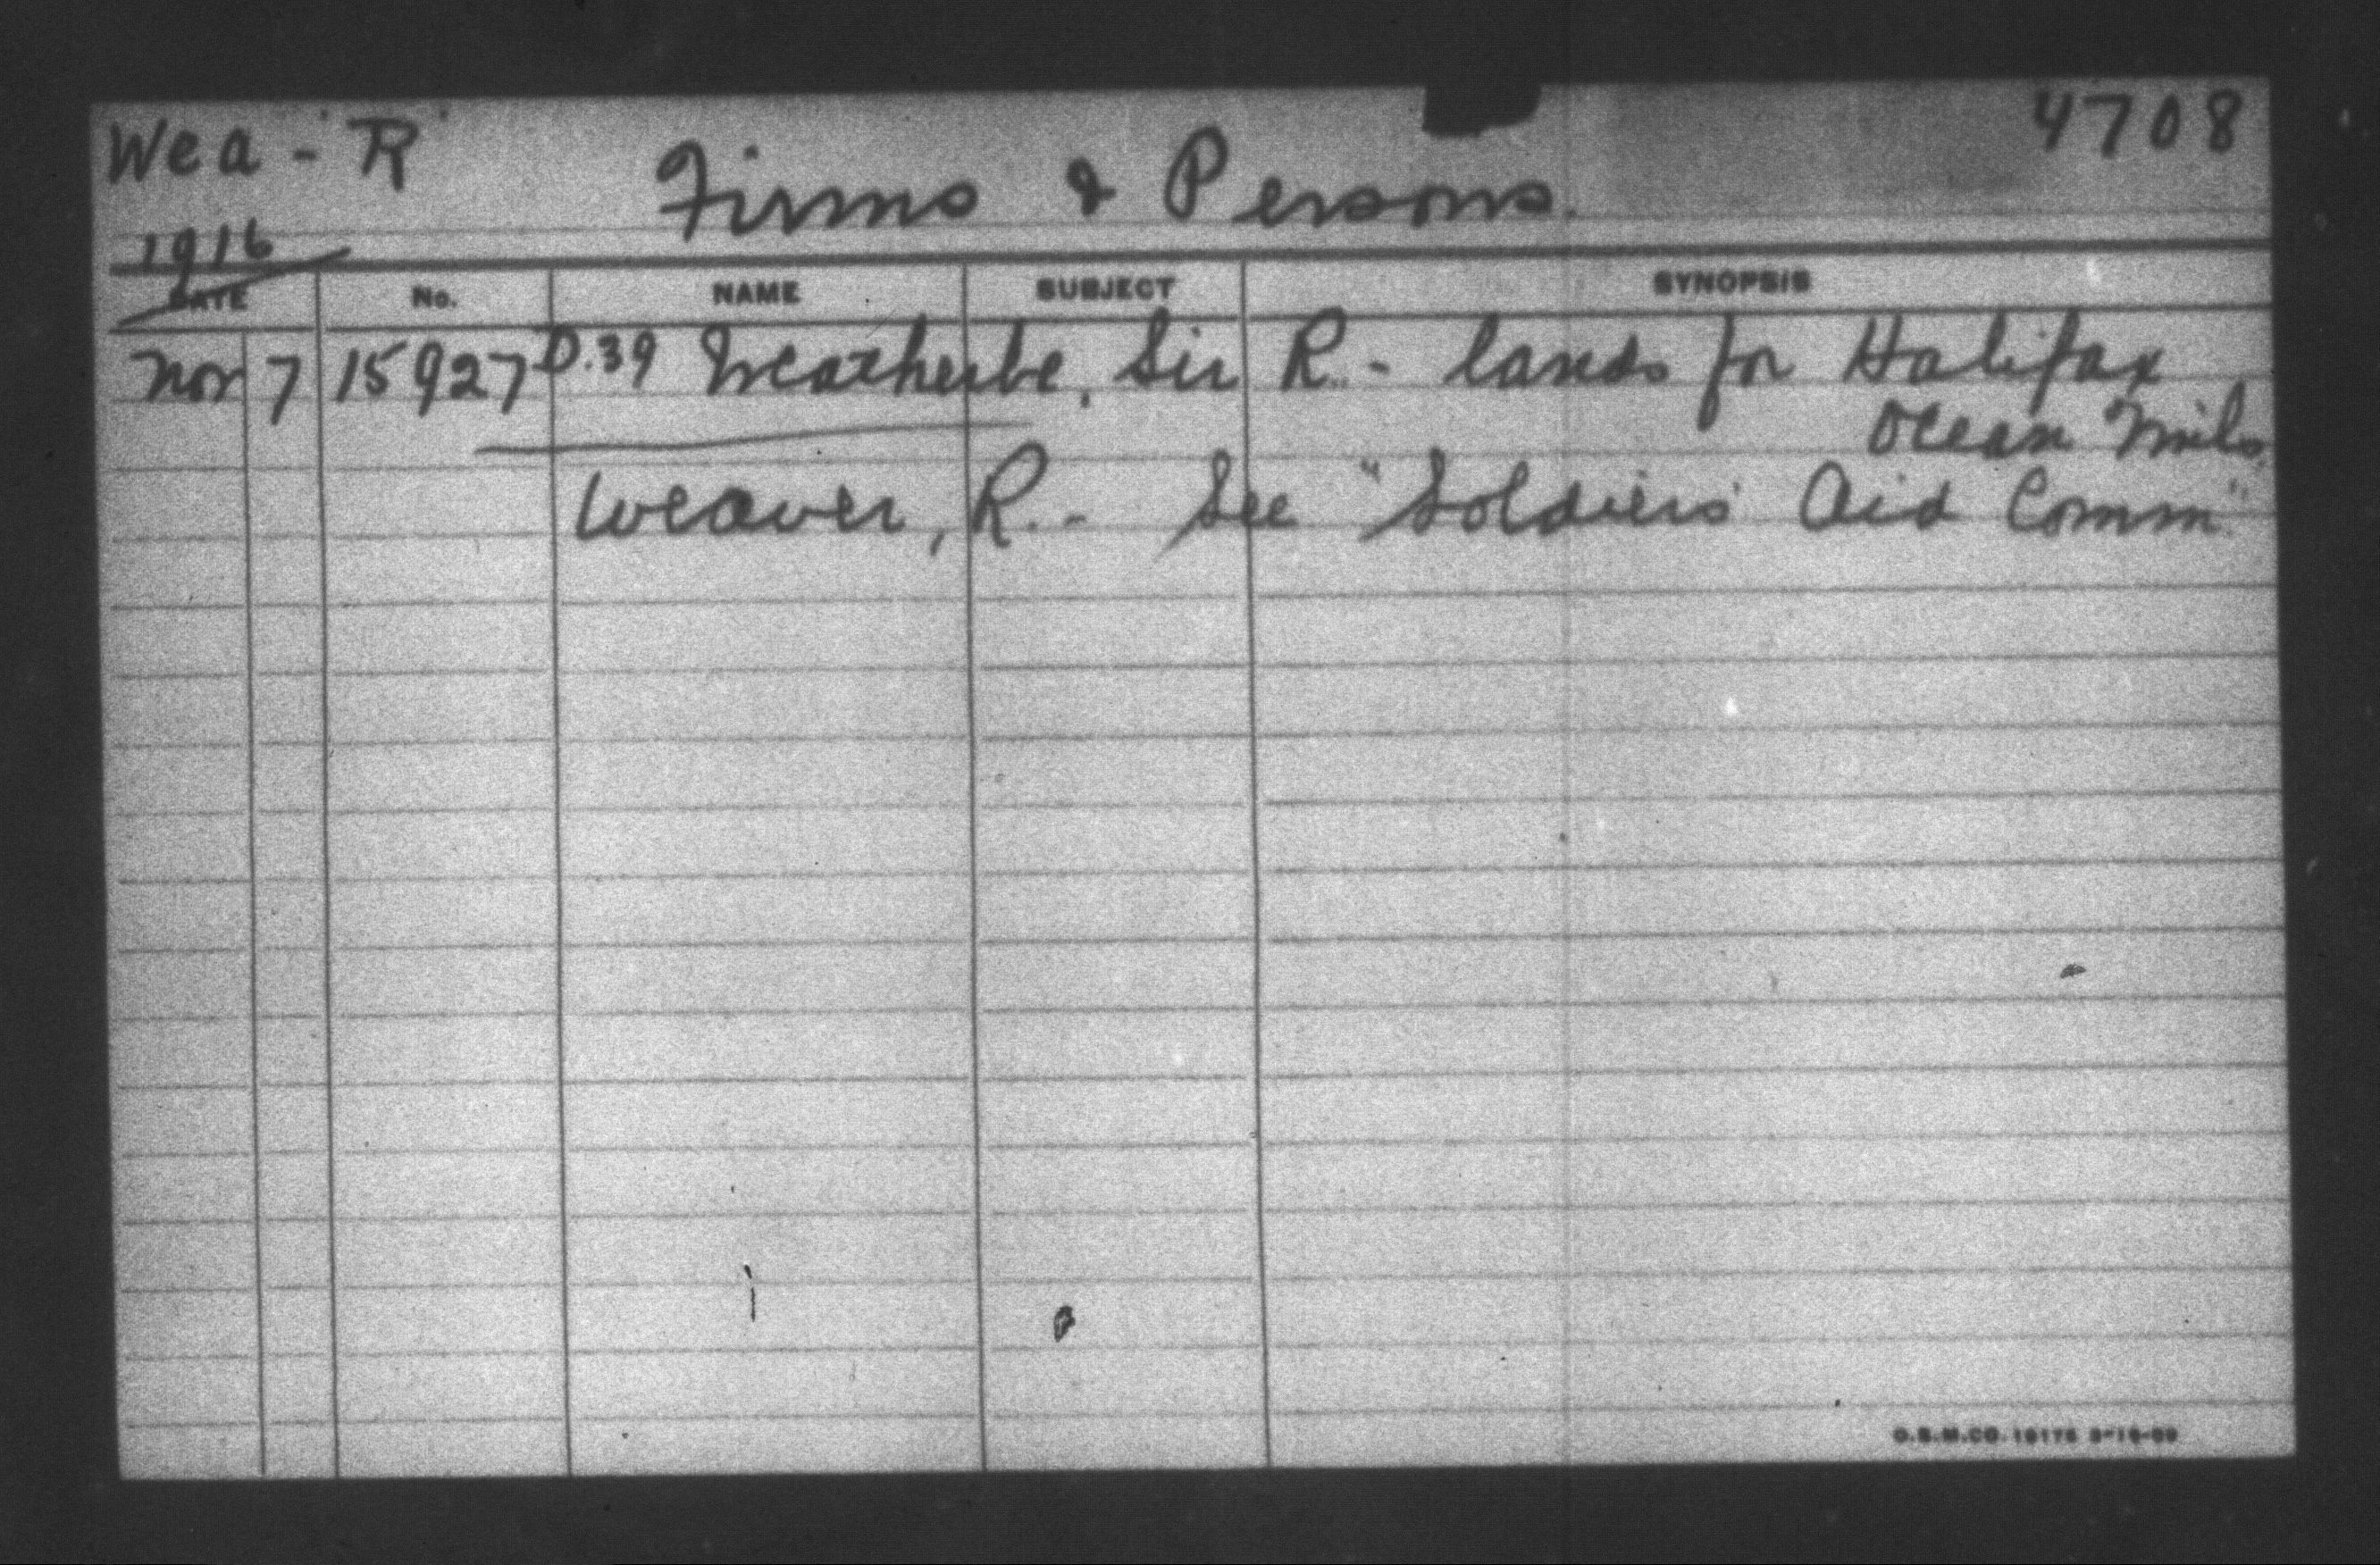 Wea - "R" 4708
Firms & Persons.
1916
DATE No. NAME SUBJECT SYNOPSIS
Nov 7 15927 D.39 Weatherbe, Sir R. - lands for Halifax
Ocean
Weaver, R. - See "Soldiers' Aid Comm"
O.S.M.CO.